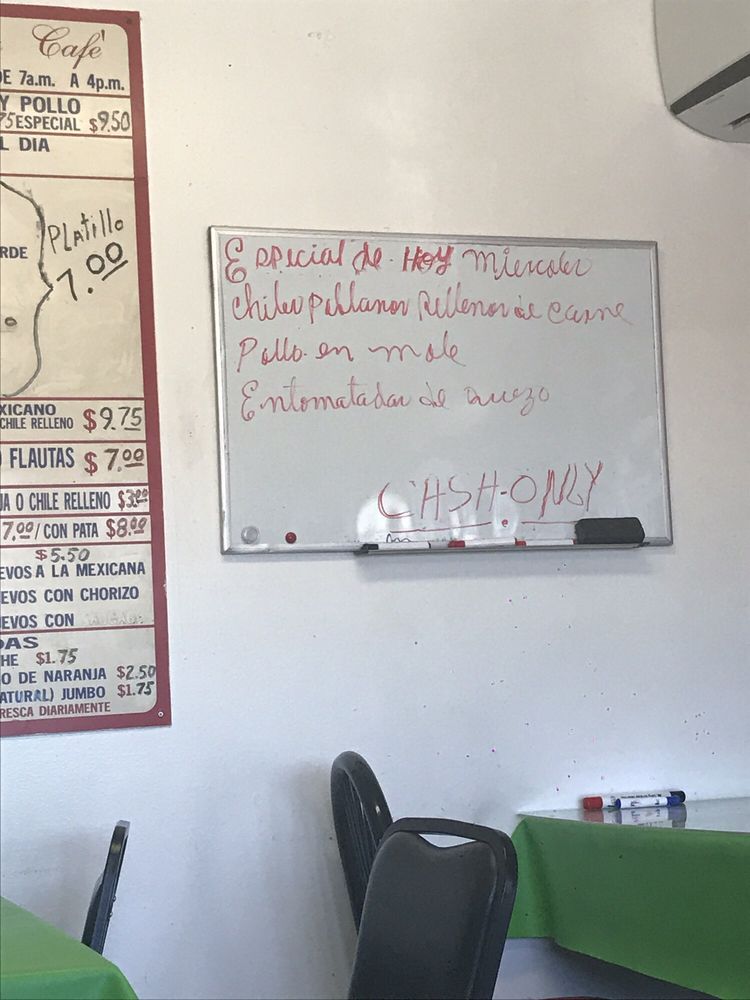 Café
DE 7a.m. A 4p.m.
Y POLLO
75 ESPECIAL $9.50
L DIA
RDE
PLatillo
7.00
XICANO
CHILE RELLENO $9.75
FLAUTAS $7.00
JA O CHILE RELLENO $3.00
7.00/CON PATA $8.00
$5.50
EVOS A LA MEXICANA
EVOS CON CHORIZO
EVOS CON
DAS
HE $1.75
O DE NARANJA $2.50
ATURAL) JUMBO $1.75
RESCA DIARIAMENTE
Especial de HOY Miercoles
Chiles Poblanos Rellenos de carne
Pollo en mole
Entomatadas de quezo
CASH-ONLY